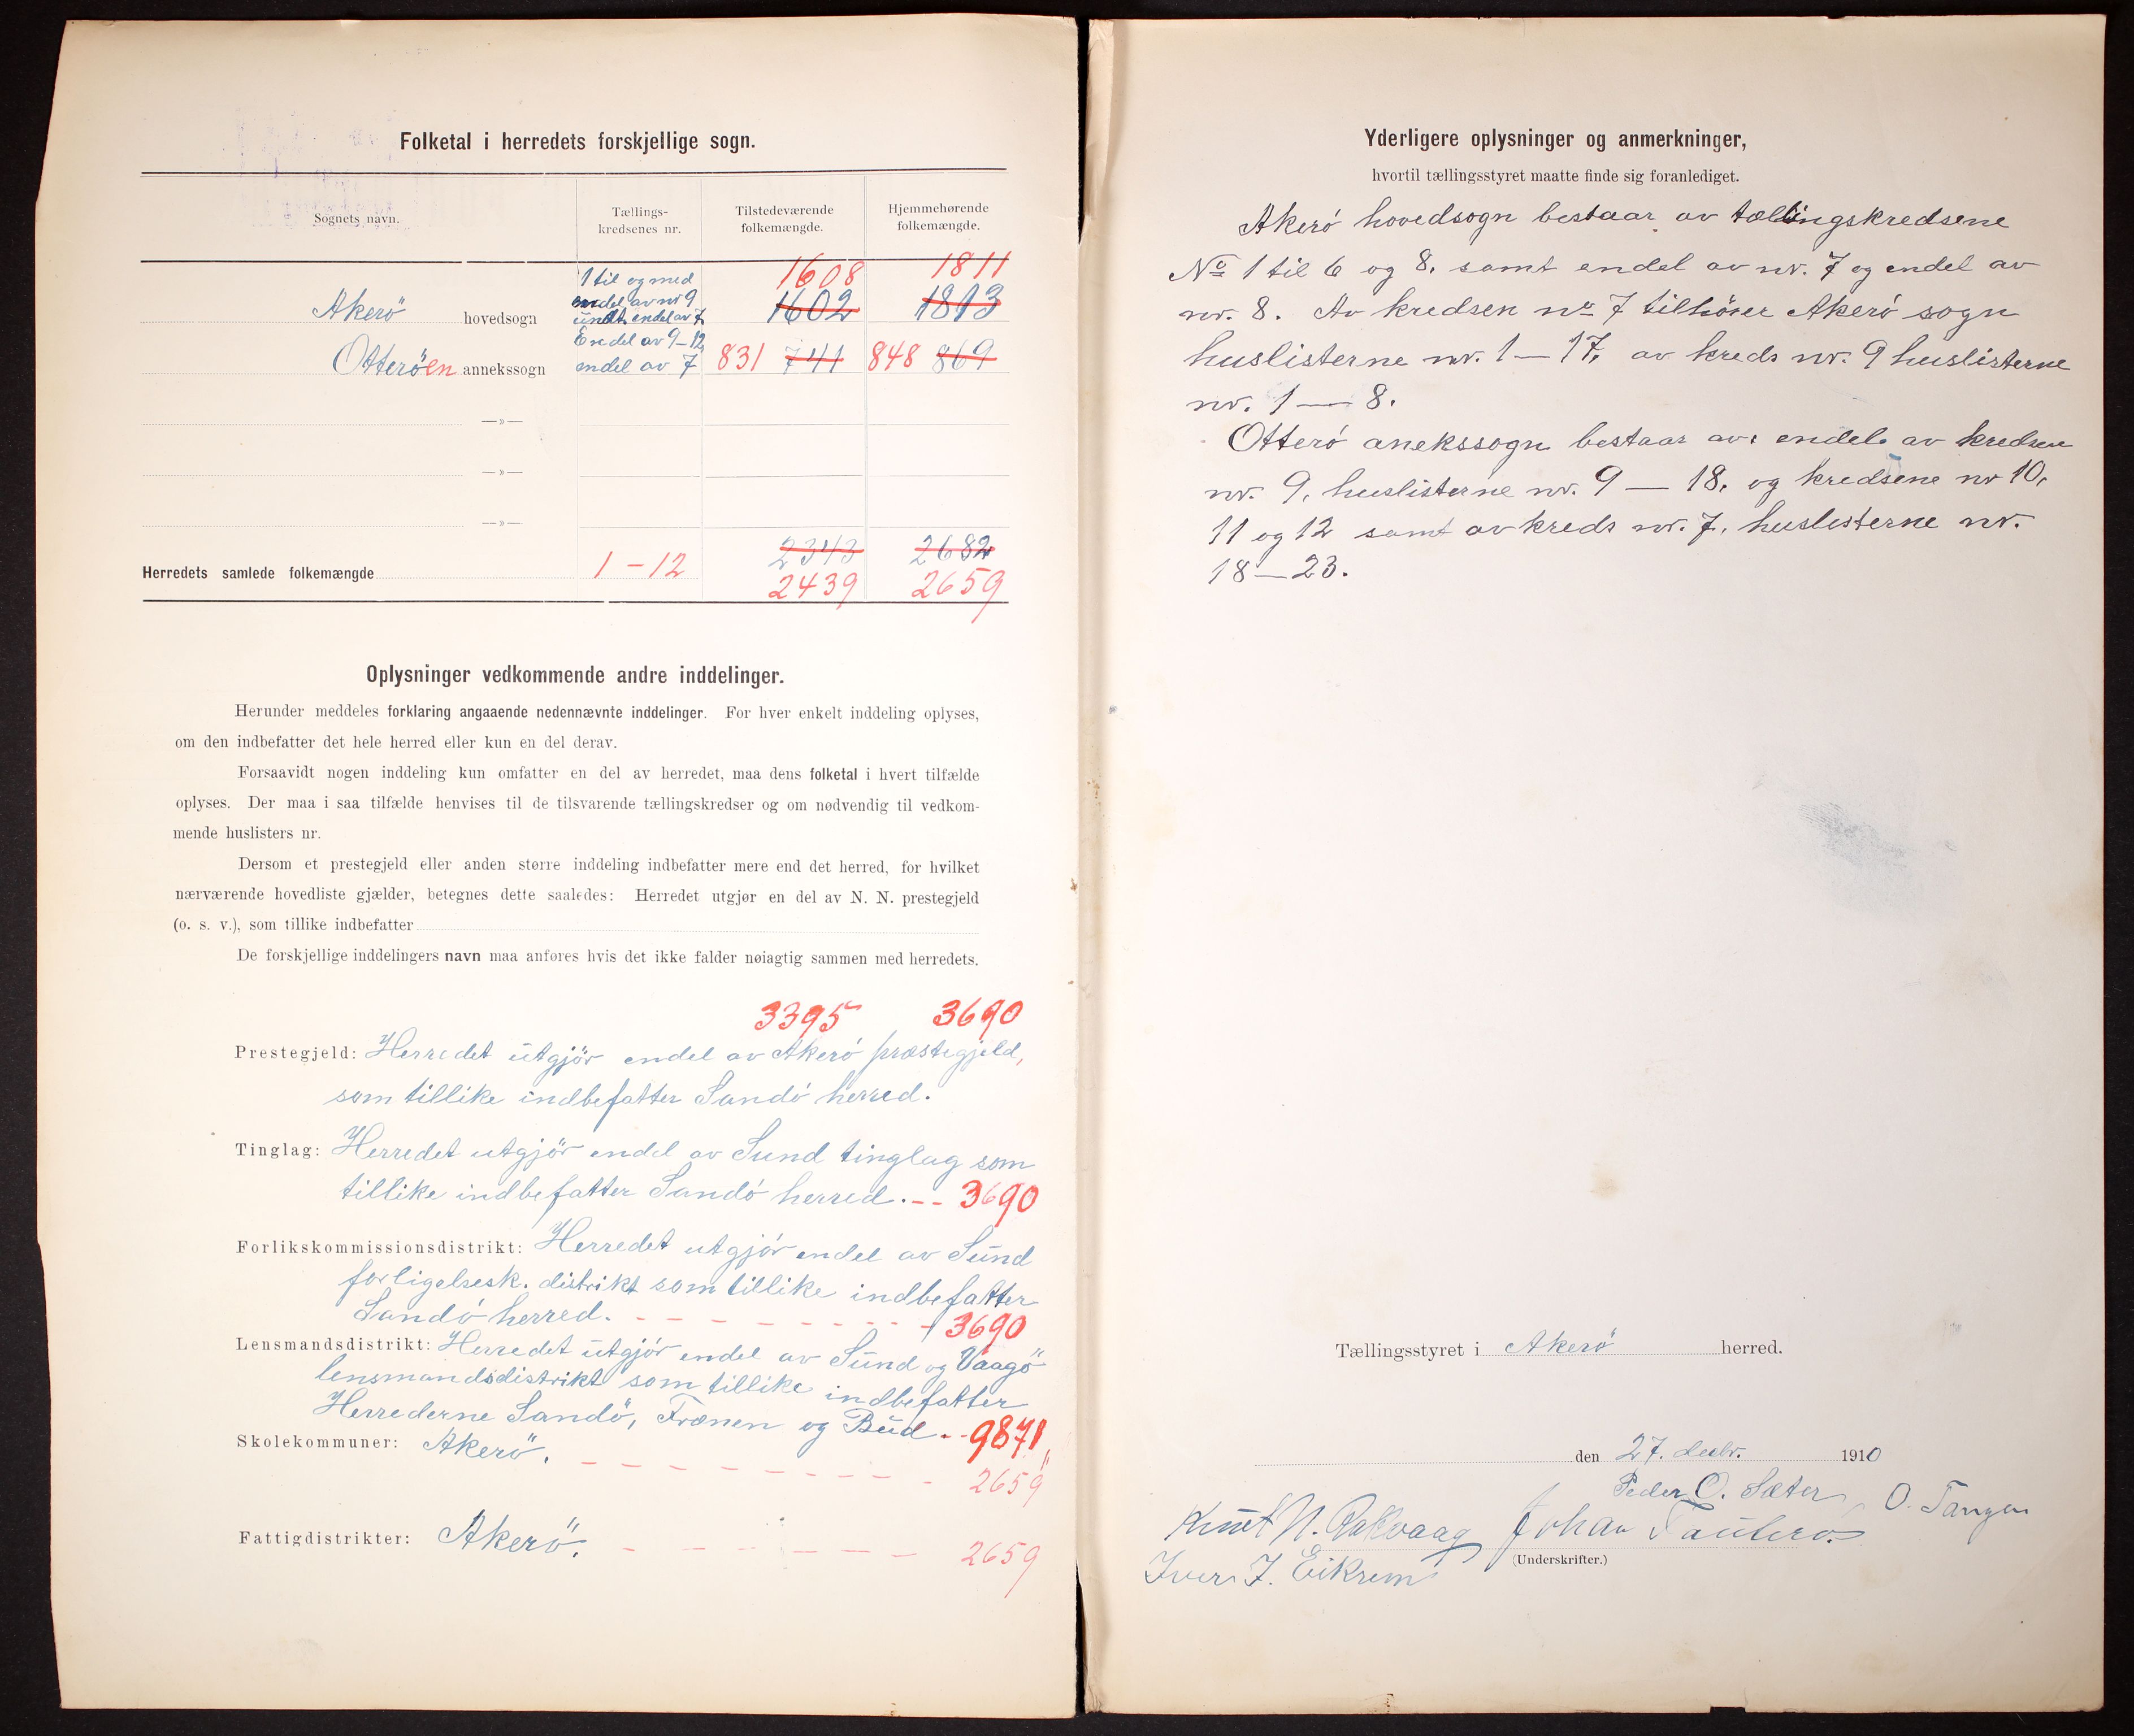 Folketal i herredets forskjellige sogn.
Sognets navn.
Tællings-
kredsenes nr.
Tilstedeværende
folkemængde.
Hjemmehørende
folkemængde.
1608 1811
1 til og med
endel av nr 9
undt. endel av 7
Akerö hovedsogn 1602 1813
Endel av 9–12
Otterøen annekssogn endel av 7 831 741 848 869
—»—
—»—
—»—
2343 2682
Herredets samlede folkemængde 1 – 12
2439 2659
Oplysninger vedkommende andre inddelinger.
Herunder meddeles forklaring angaaende nedennævnte inddelinger. For hver enkelt inddeling oplyses,
om den indbefatter det hele herred eller kun en del derav.
Forsaavidt nogen inddeling kun omfatter en del av herredet, maa dens folketal i hvert tilfælde
oplyses. Der maa i saa tilfælde henvises til de tilsvarende tællingskredser og om nødvendig til vedkom-
mende huslisters nr.
Dersom et prestegjeld eller anden større inddeling indbefatter mere end det herred, for hvilket
nærværende hovedliste gjælder, betegnes dette saaledes: Herredet utgjør en del av N. N. prestegjeld
(o. s. v.), som tillike indbefatter
De forskjellige inddelingers navn maa anføres hvis det ikke falder nøiagtig sammen med herredets.
3395 3690
Prestegjeld: Herredet utgjör endel av Akerö præstegjeld,
som tillike indbefatter Sandö herred.
Tinglag: Herredet utgjör endel av Sund tinglag som
tillike indbefatter Sandö herred. -- 3690
Forlikskommissionsdistrikt: Herredet utgjör endel av Sund
forligelsesk. distrikt som tillike indbefatter
Sandö herred. - - - - - - - - - 3690
Lensmandsdistrikt: Herredet utgjör endel av Sund og Vaagö
lensmandsdistrikt som tillike indbefatter
Herrederne Sandö, Frænen og Bud. - - 9871
Skolekommuner: Akerö. - - - - - - - - - 2659
Fattigdistrikter: Akerö. - - - - - - - 2659
Yderligere oplysninger og anmerkninger,
hvortil tællingsstyret maatte finde sig foranlediget.
Akerö hovedsogn bestaar av tællingskredsene
No 1 til 6 og 8. samt endel av nr. 7 og endel av
nr. 8. Av kredsen nr 7 tilhörer Akerö sogn
huslisterne nr. 1 — 17, av kreds nr. 9 huslisterne
nr. 1 — 8.
Otterö anekssogn bestaar av: endel av kredsen
nr. 9, huslisterne nr. 9 — 18, og kredsene nr 10,
11 og 12 samt av kreds nr. 7, huslisterne nr.
18 — 23.
Tællingsstyret i Akerö herred.
den 27. decbr. 1910
Peder O. Sæter O. Tangen
Knut N. Rakvaag Johan
(Underskrifter.)
Iver J. Eikrem